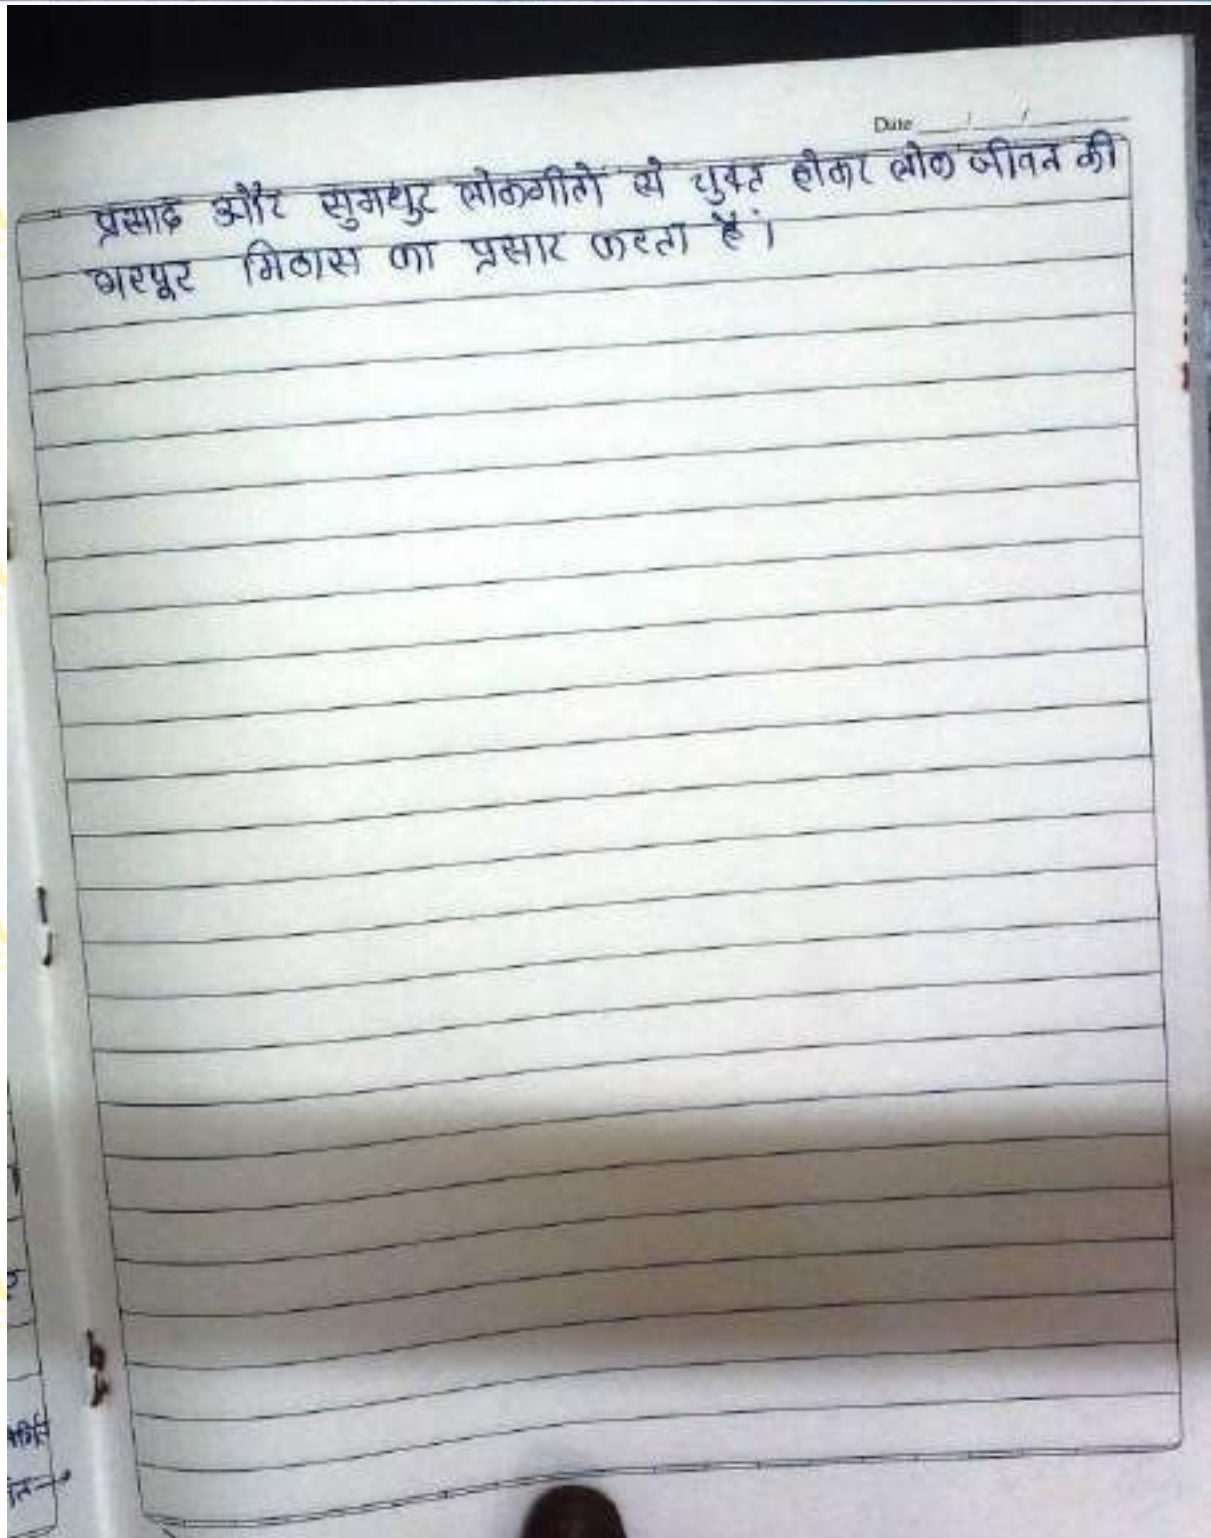 Date / /
प्रसाद और सुमधुर लोकगीतो से युक्त होकर लोक जीवन की
भरपूर मिठास का प्रसार करता है।